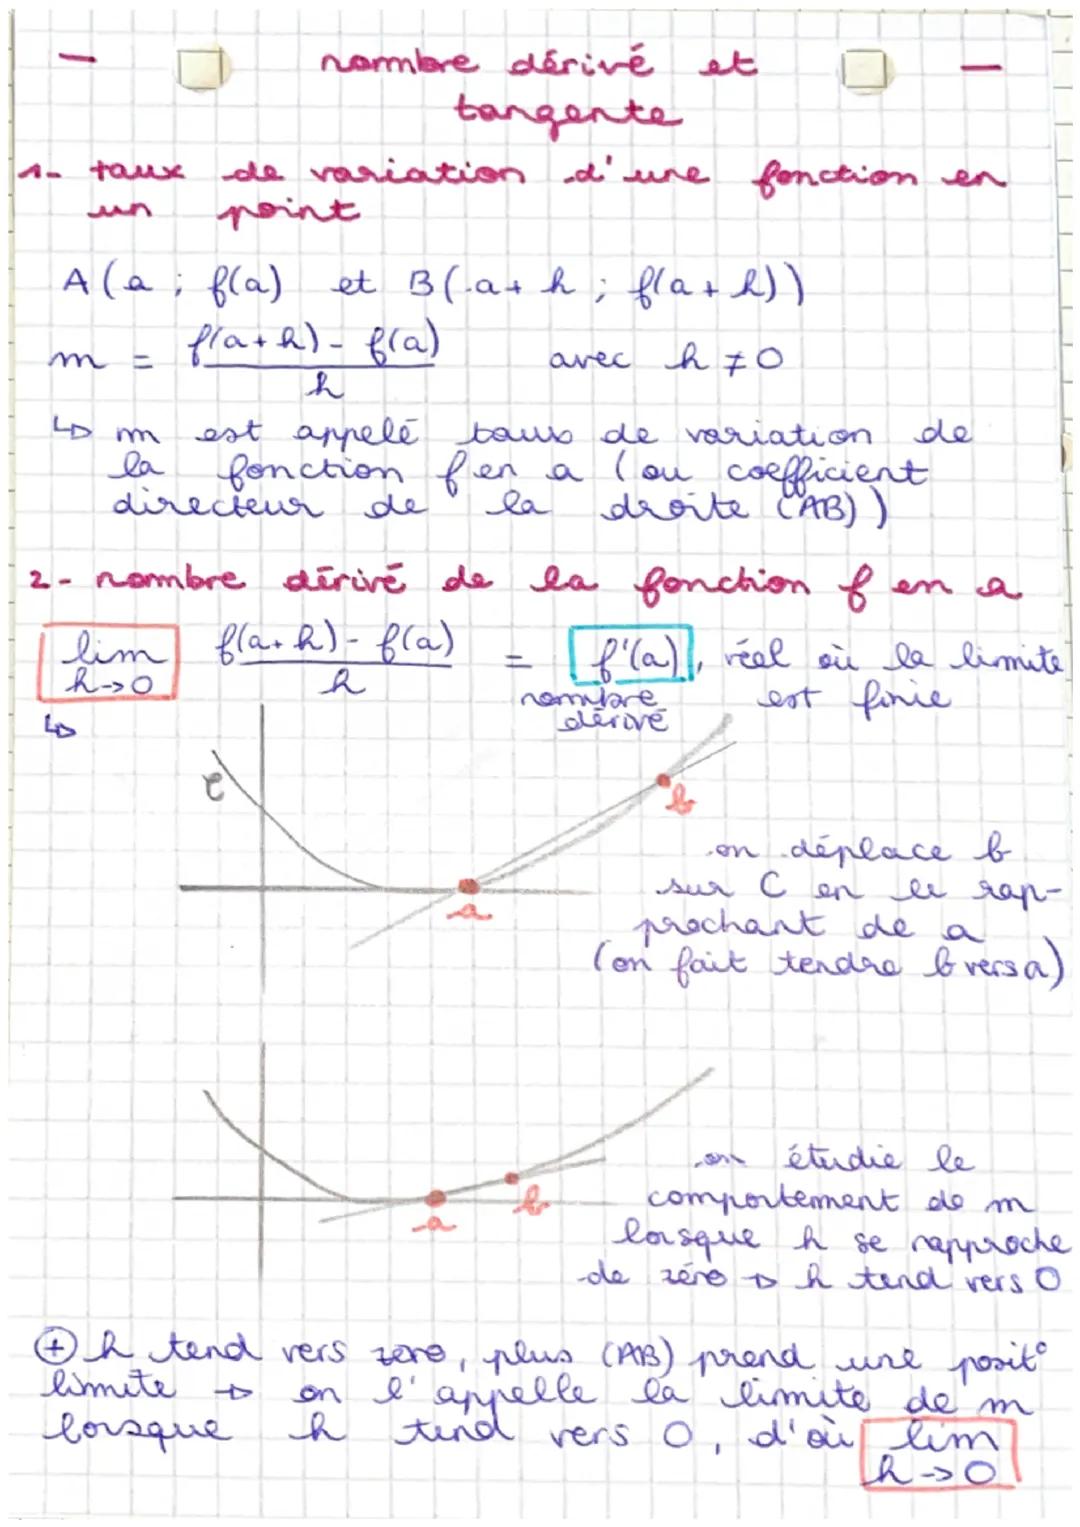 nombre dérivé et
tangente
1- taux de variation d'une fonction en
un point
A (a ; f(a) et B(a+h ; f(a+h))
m = f(a+h) - f(a) / h avec h ≠ 0
↳ m est appelé taux de variation de
la fonction f en a (ou coefficient
directeur de la droite (AB))
2- nombre dérivé de la fonction f en a
lim h->0 f(a+h) - f(a) / h = f'(a), réel où la limite
nombre dérivé est finie
↳
C
b
a
on déplace b
sur C en le rap-
prochant de a
(on fait tendre b vers a)
a
b
on étudie le
comportement de m
lorsque h se rapproche
de zéro → h tend vers 0
⊕ h tend vers zero, plus (AB) prend une posit°
limite → on l'appelle la limite de m
lorsque h tend vers 0, d'où lim
h->0